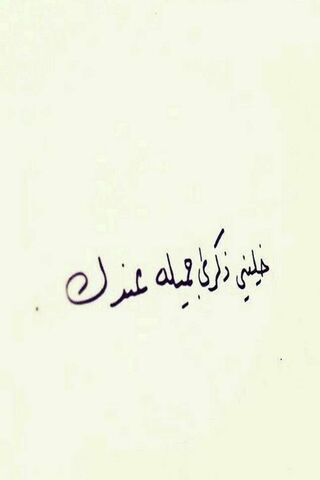 خليني ذكرىٰ جميله عندك